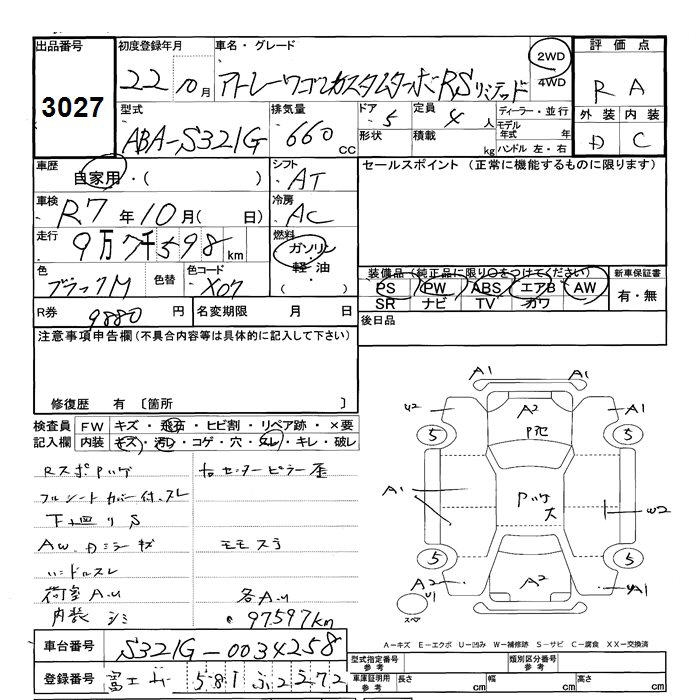 出品番号 初度登録年月 車名・グレード 2WD 4WD 評価点
3027 22 10月 アトレーワゴンカスタムターボRSリミテッド R A
型式 排気量 ドア 定員 ディーラー・並行 外装 内装
ABA-S321G 660cc 5 4人 モデル年式 年 D C
形状 積載 kg ハンドル 左・右
車歴 自家用・( ) シフト AT セールスポイント(正常に機能するものに限ります)
車検 R7年10月( 日) 冷房 AC
走行 9万7千598km 燃料 ガソリン・軽油・( )
色 ブラックM 色替 色コード X07
装備品(純正品に限り○をつけてください) 新車保証書
PS PW ABS エアB AW 有・無
SR ナビ TV カワ
R券 9880円 名変期限 月 日 後日品
注意事項申告欄(不具合内容等は具体的に記入して下さい)
修復歴 有 〔箇所 〕
検査員記入欄 FW キズ・飛石・ヒビ割・リペア跡・×要
内装 キズ・汚レ・コゲ・穴・スレ・キレ・破レ
フルシートカバー付.スレ
下廻りS
ハンドルスレ
荷室A.U 各A.U
内装シミ 97597km
A1 A1
U2 A2 A1
5 5
A1 W2
5 5
A2 U1 A2 A1
スペア
A-キズ E-エクボ U-凹み W-補修跡 S-サビ C-腐食 XX-交換済
車台番号 S321G-0034258
登録番号 富士山 581 ふ2272
型式指定番号 参考 類別区分番号 参考
車庫証明用 参考 長さ cm 幅 cm 高さ cm